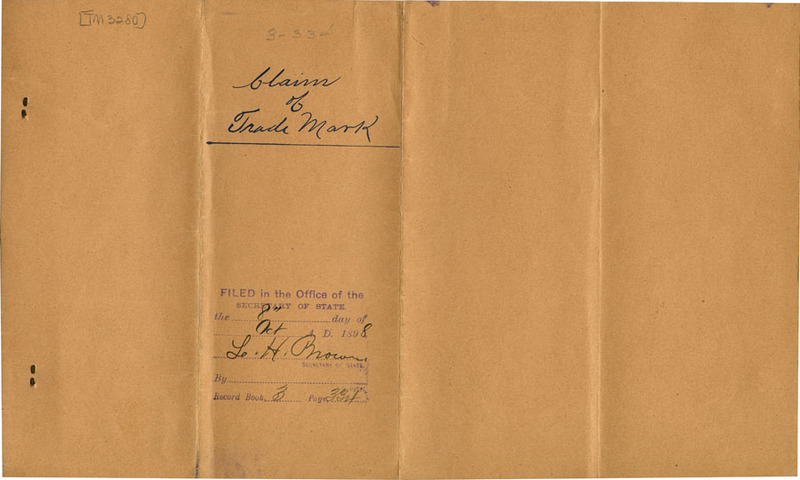 [TM 3280]
3-334
Claim
of
Trade Mark
FILED in the Office of the
SECRETARY OF STATE.
the 8" day of
Oct A. D. 1898
L. H. Brown
SECRETARY OF STATE.
By
Record Book, 3 Page 334